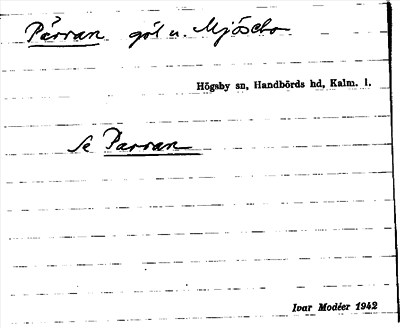 Pärran göl u. Mjösebo
Högsby sn, Handbörds hd, Kalm. l.
Se Parran
Ivar Modéer 1942